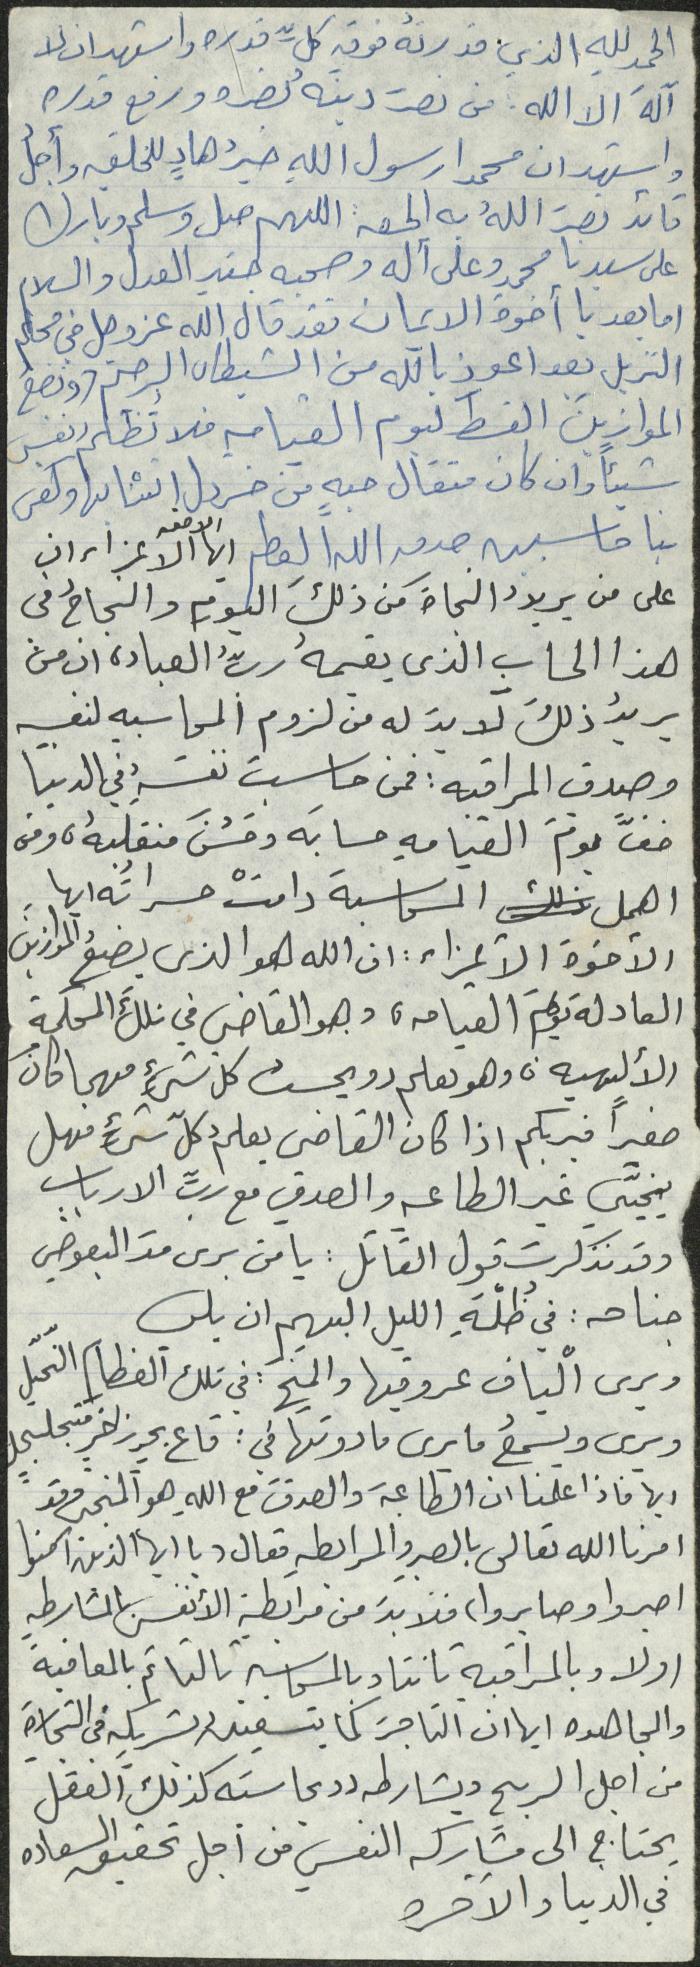 الحمد لله الذي قدرته فوق كل قدره واشهد ان لا
آله الا الله: من نصر دينه نصره ورفع قدره
واشهد ان محمدا رسول الله خير هادٍ للخلق وأجل
قائد نصر الله به الحق: اللهم صل وسلم وبارك
على سيدنا محمد وعلى آله وصحبه جند العدل والسلام
اما بعد يا أخوة الايمان فقد قال الله عز وجل في محكم
التنزيل بعد اعوذ بالله من الشيطان الرجيم (ونضع
الموازين القسط ليوم القيامه فلا تظلم نفس
شيئاً وان كان مثقال حبهٍ من خردل اتينا بها وكفى
بنا حاسبين صدق الله العظيم ايها الاخوه الأعزاء ان
على من يريد النجاة من ذلك اليوم والنجاح في
هذا الحساب الذى يقيمه رب العباد، ان من
يريد ذلك لا بد له من لزوم المحاسبه لنفسه
وصدق المراقبه: فمن حاسب نفسه في الدنيا
خفَّ يوم القيامه حسابه وحسن منقلبه، ومن
اهمل ذلك المحاسبة دامتْ حسراته ايها
الأخوة الأعزاء: ان الله هو الذى يضع الموازين
العادلة يوم القيامه، وهو القاضى في تلك المحكمة
الألهيه، وهو يعلم ويحسب كل شىءٍ مهما كان
صغيراً فبربكم اذا كان القاضى يعلم كل شىءٍ فهل
ينجّي غير الطاعه والصدق مع ربّ الارباب
وقد تذكرت قول القائل: يا من يرى مدّ البعوض
جناحه: في ظلمة الليل البهيم الاليل
ويرى ألياف عروقها والمخ: في تلك العظام النّحّل
ويرى ويسمع ما يرى ما دونها في: قاع بحر زاخرٍ متجلجل
ايها فاذا علمنا ان الطاعة والصدق مع الله هو المنجي وقد
امرنا الله تعالى بالصبر والمرابطه فقال (يا ايها الذين آمنوا
اصبروا وصابروا) فلا بد من مرابطة الأنفس بالمشارطه
اولا وبالمراقبة ثانيا وبالمحاسبة ثالثا ثم بالمعاقبة
والمجاهده ايها ان التاجر كما يستعين بشريكه في التجارة
من اجل الربح ويشارطه ويحاسبه كذلك العقل
يحتاج الى مشاركه النفس من أجل تحقيق السعاده
في الدنيا والآخره